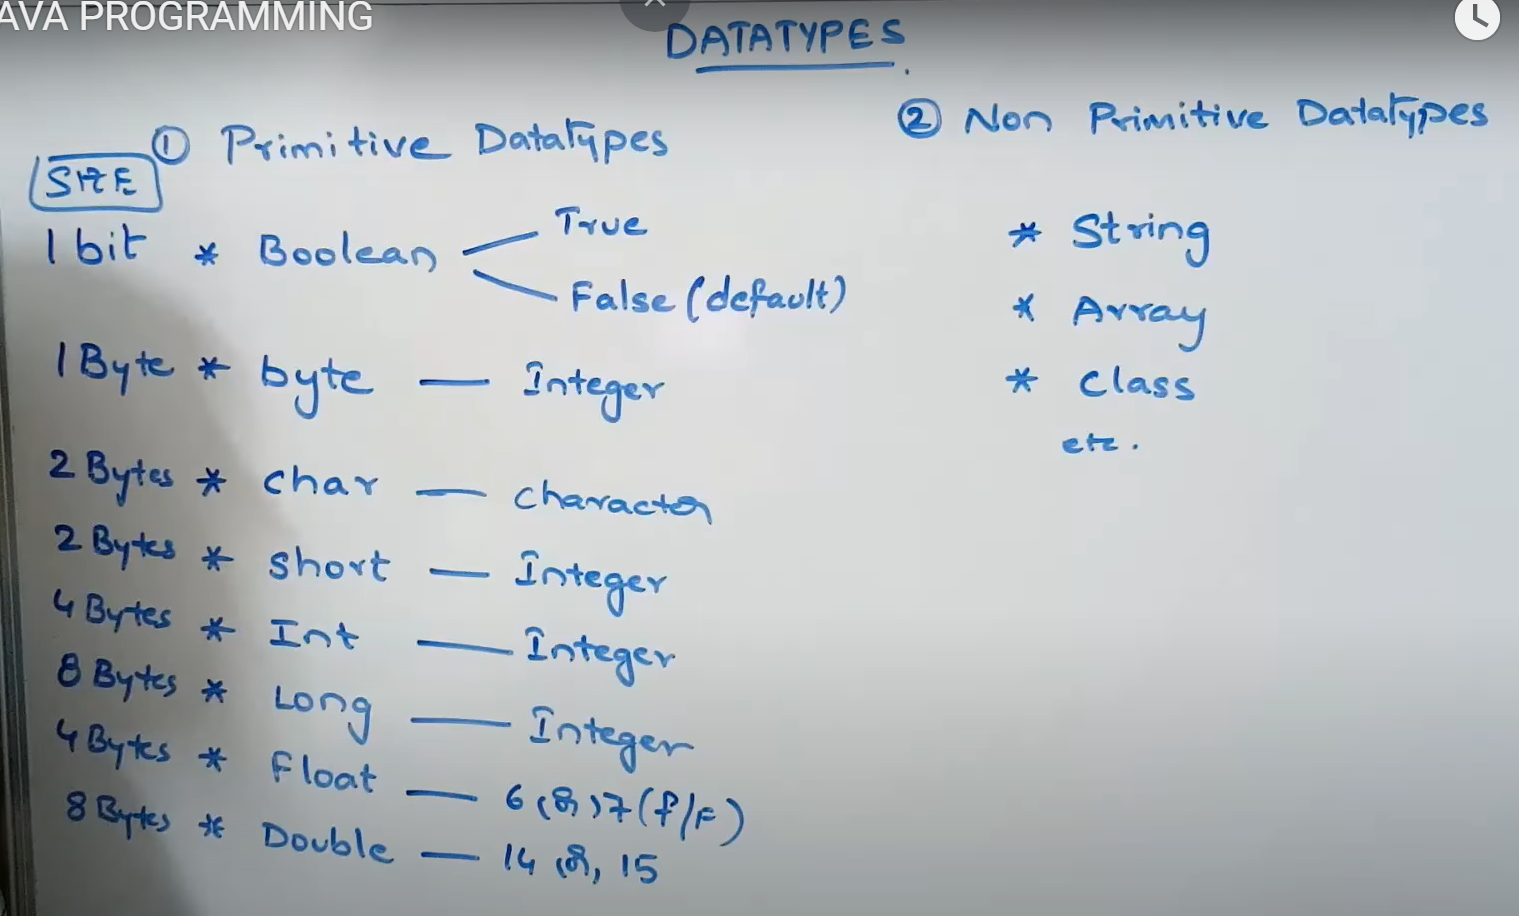 AVA PROGRAMMING
DATATYPES
① Primitive Datatypes
SIZE
1 bit * Boolean
True
False (default)
1 Byte * byte — Integer
2 Bytes * char — character
2 Bytes * short — Integer
4 Bytes * Int — Integer
8 Bytes * Long — Integer
4 Bytes * Float — 6 (or) 7 (f/F)
8 Bytes * Double — 14 or, 15
② Non Primitive Datatypes
* String
* Array
* Class
etc.